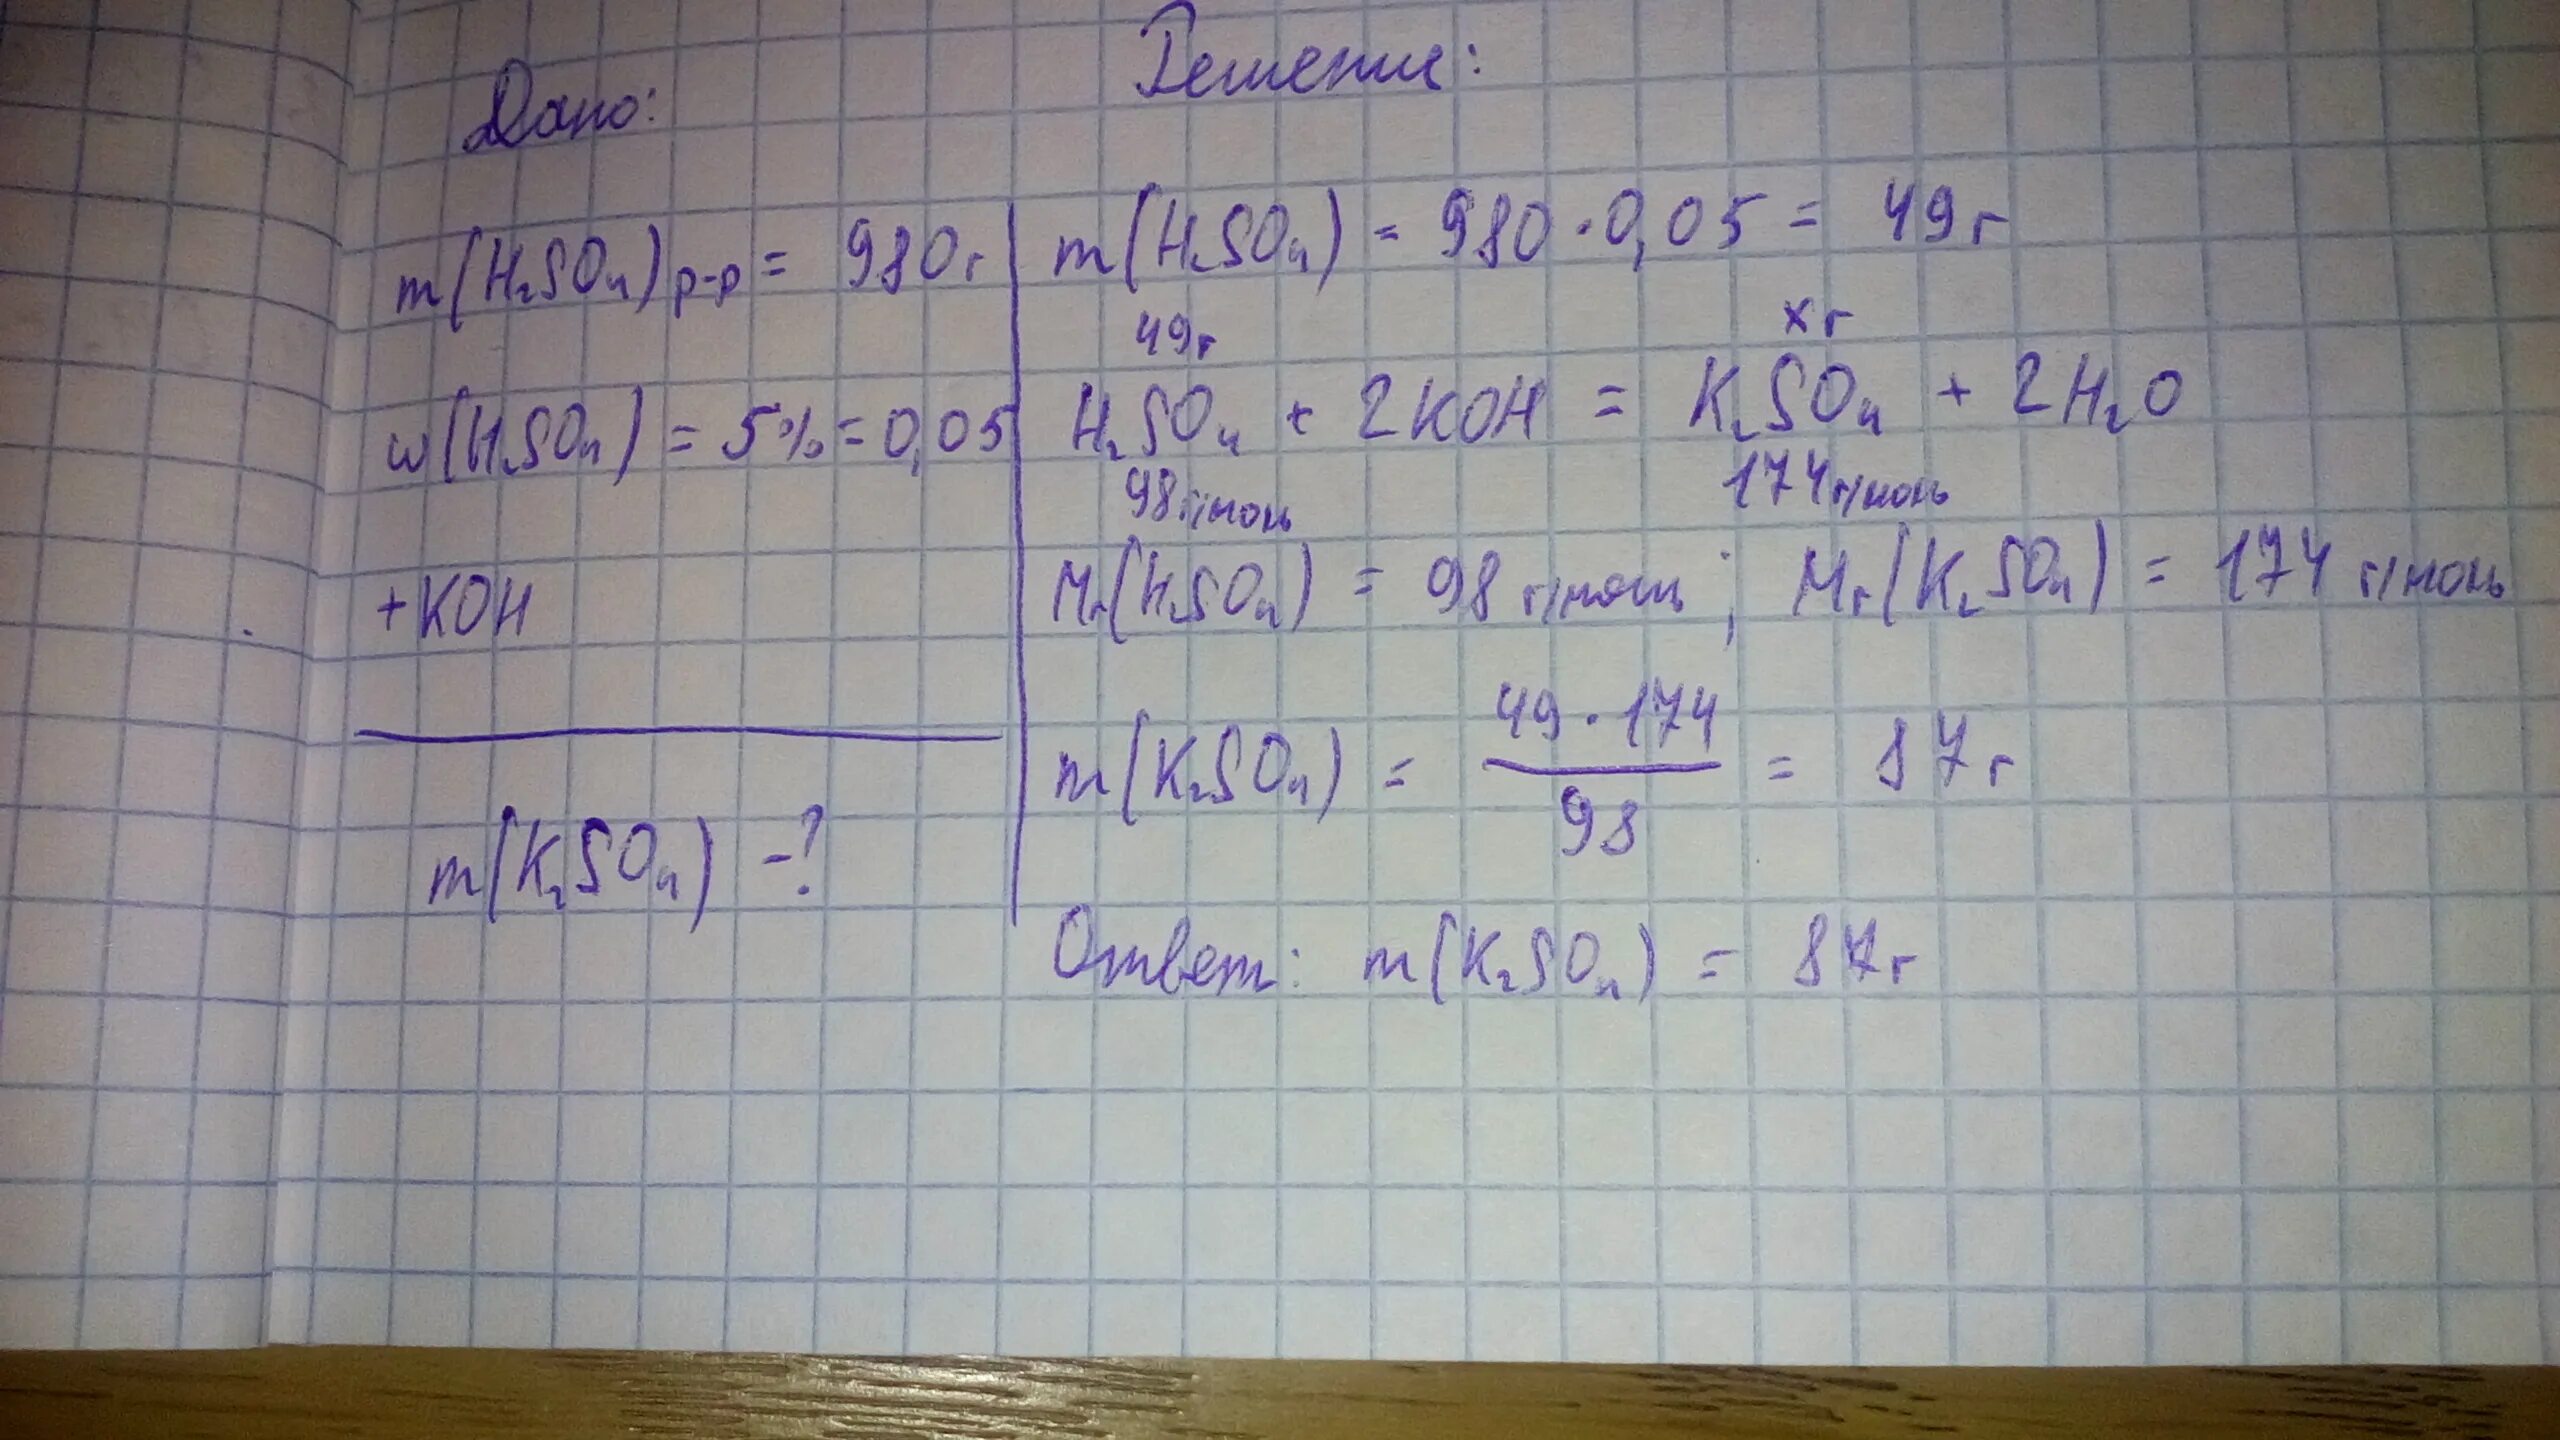 Дано:
m(H₂SO₄)р-р = 980г
w(H₂SO₄) = 5% = 0,05
+KOH
m(K₂SO₄) -?
Решение:
m(H₂SO₄) = 980·0,05 = 49г
49г xг
H₂SO₄ + 2KOH = K₂SO₄ + 2H₂O
98г/моль 174г/моль
Mr(H₂SO₄) = 98 г/моль ; Mr(K₂SO₄) = 174 г/моль
m(K₂SO₄) = 49·174 / 98 = 87г
Ответ: m(K₂SO₄) = 87г